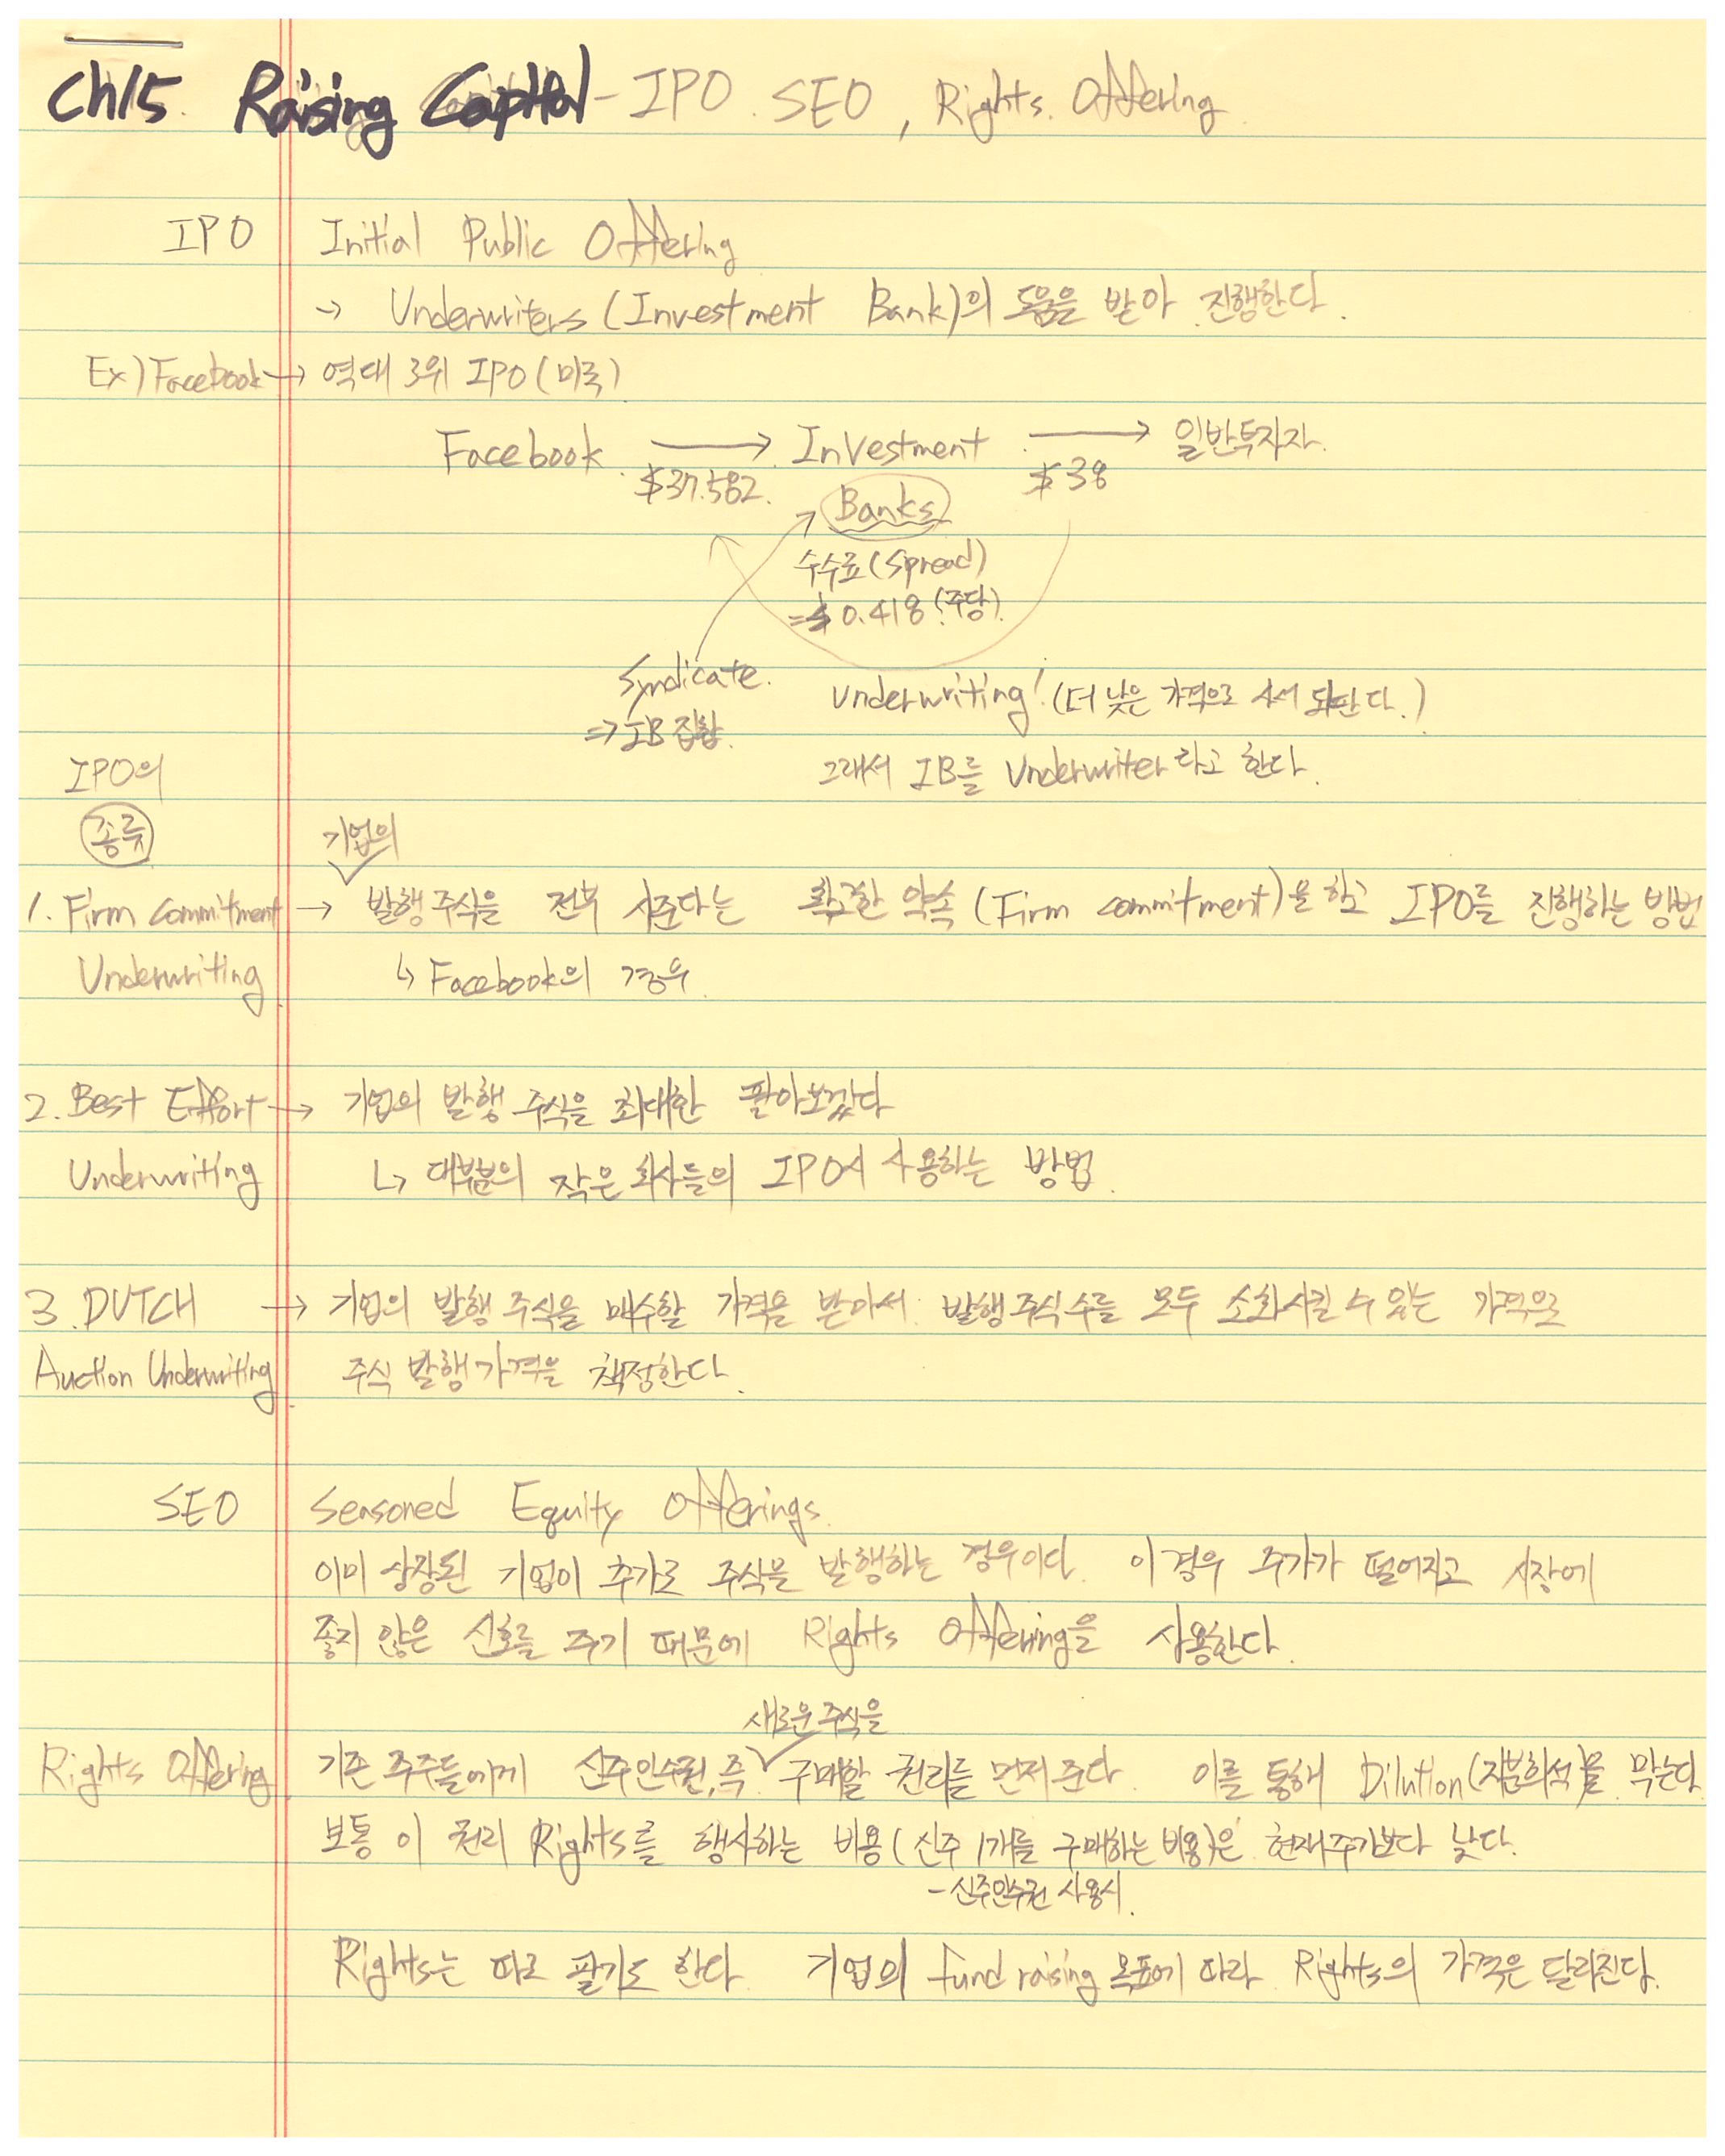 Ch15. Raising Capital - IPO. SEO, Rights. Offering.
IPO Initial Public Offering
→ Underwriters (Investment Bank)의 도움을 받아 진행한다.
Ex) Facebook → 역대 3위 IPO (미국)
Facebook → Investment → 일반투자자.
$37.582. $38
Banks
수수료 (Spread)
= $0.418 (주당).
Syndicate. Underwriting! (더 낮은 가격으로 사서 되판다.)
⇒ IB 집합.
IPO의 그래서 IB를 Underwriter라고 한다.
종류 기업의
1. Firm Commitment → 발행주식을 전부 사준다는 확고한 약속 (Firm commitment)을 하고 IPO를 진행하는 방법
Underwriting. ↳ Facebook의 경우.
2. Best Effort → 기업의 발행 주식을 최대한 팔아보겠다
Underwriting ↳ 대부분의 작은 회사들의 IPO시 사용하는 방법.
3. DUTCH → 기업의 발행 주식을 매수할 가격을 받아서. 발행주식수를 모두 소화시킬 수 있는 가격으로
Auction Underwriting. 주식 발행가격을 책정한다.
SEO Seasoned Equity Offerings.
이미 상장된 기업이 추가로 주식을 발행하는 경우이다. 이 경우 주가가 떨어지고 시장에
좋지 않은 신호를 주기 때문에 Rights Offering을 사용한다.
새로운주식을
Rights Offering 기존 주주들에게 신주인수권, 즉 구매할 권리를 먼저준다. 이를 통해 Dilution(지분희석)을 막는다.
보통 이 권리 Rights를 행사하는 비용 (신주 1개를 구매하는 비용)은 현재주가보다 낮다.
- 신주인수권 사용시.
Rights는 따로 팔기도 한다. 기업의 fund raising 목표에 따라 Rights의 가격은 달라진다.